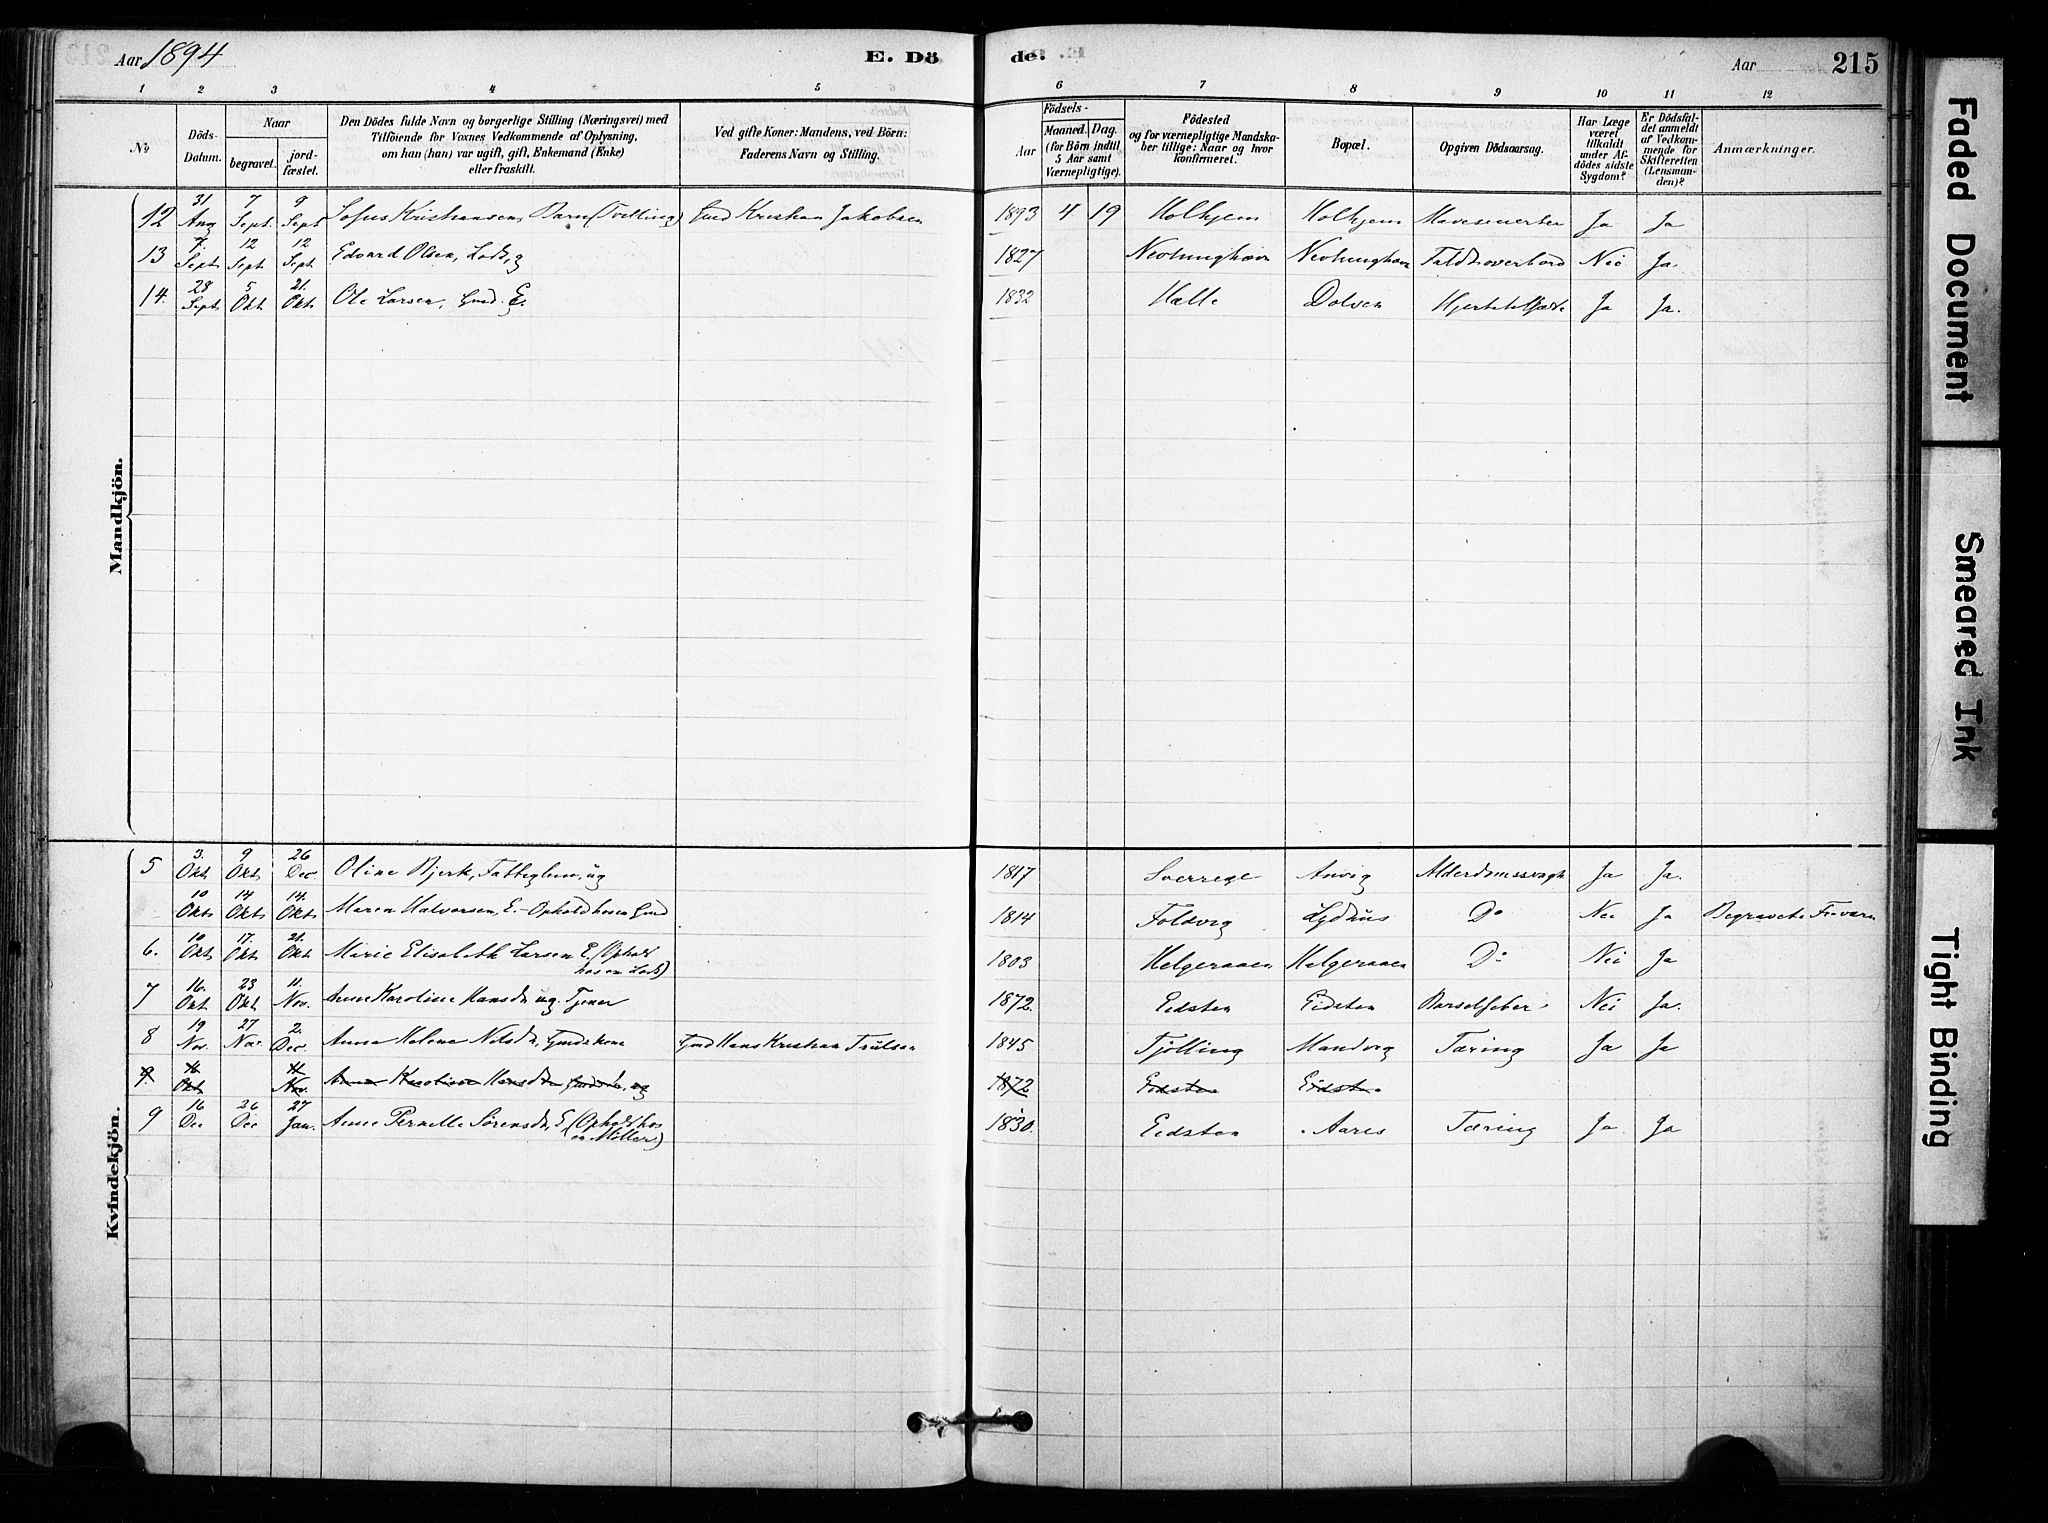 Aar 1894 E. Dö de. Aar 215
1 2 3 4 5 6 7 8 9 10 11 12
No Döds-Datum. Naar begravet. jordfæstet.
Den Dödes fulde Navn og borgerlige Stilling (Næringsvei) med
Tilföiende for Voxnes Vedkommende af Oplysning,
om han (hun) var ugift, gift, Enkemand (Enke)
eller fraskilt.
Ved gifte Koner: Mandens, ved Börn:
Faderens Navn og Stilling.
Födsels-
Aar Maaned. Dag.
(for Börn indtil
5 Aar samt
Værnepligtige).
Födested
og for værnepligtige Mandska-
ber tillige: Naar og hvor
konfirmeret.
Bopæl.
Opgiven Dödsaarsag.
Har Læge
været
tilkaldt
under Af-
dödes sidste
Sygdom?
Er Dödsfal-
det anmeldt
af Vedkom-
mende for
Skifteretten
(Lensman-
den)?
Anmærkninger.
Mandkjön.
12 31 Aug 7 Sept. 9 Sept Sofus Kristiansen Barn (Tvilling) Gmd Kristian Jakobsen 1893 4 19 Holhjem Holhjem Mavesmerter Ja Ja
13 7. Sept 12 Sept 12 Sept Edvard Olsen, Lods, g 1827 Nevlunghavn Nevlunghavn Faldt overbord Nei Ja.
14. 28 Sept 5 Okt 21. Okt Ole Larsen, Gmd. E. 1832 Halle Dolven Ja Ja.
Kvindekjön.
5 3. Okt 9 Okt 26 Dec Oline Bjerk, Fatteglem, ug 1817 Sverrege Anvig Alderdomssvagh Ja Ja.
10 Okt 14 Okt 14. Okt Maren Halvorsen, E.- Ophold hos en Gmd 1814 Foldvig Lydhus Do Nei Ja Begravet i Fr.værn
6. 10 Okt 17. Okt 21. Okt Marie Elisabeth Larsen E. (Ophold
hos en Lods) 1803 Helgeraaen Helgeraaen Do Nei Ja
7 16. Okt 23 Okt 11. Nov. Anne Karoline Hansd. ug. Tjener 1872. Eidsten Eidsten Barselfeber Nei Ja.
8 19 Nov. 27 Nov. 2. Dec. Anna Helene Nilsd. Gmdskone Gmd Hans Kristian Trulsen 1845 Tjölling Mandvig Tæring Ja Ja
9. Okt 11 Nov. Anne Karoline Hansd. ug 1872 Eidsten Eidsten
9 16 Dec 26 Dec 27 Jan. Anne Pernelle Sörensd. E (Ophold hos
en Möller) 1830. Eidsten Aarös Tæring Ja Ja
Faded Document
Smeared Ink
Tight Binding